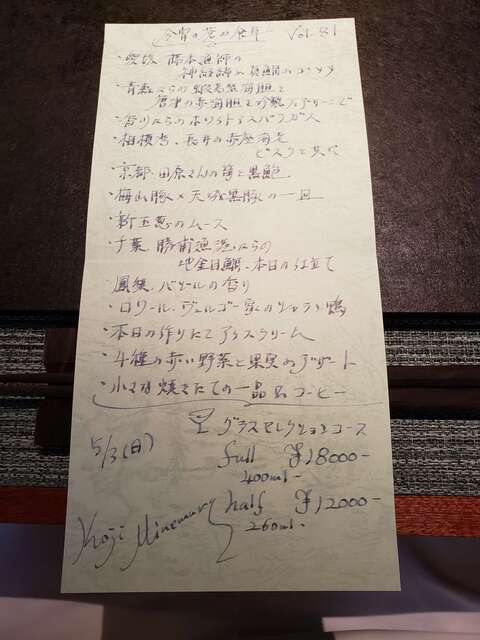 今宵の蒼の食卓 Vol.81
・愛媛 藤本漁師の
神経締め真鯛のコンソメ
・青森からの蝦夷紫海胆と
唐津の赤海胆と
・香川からのホワイトアスパラガス
・相模湾、長井の赤座海老
ビスクと共に
・京都、田原さんの筍と黒鮑
・梅山豚×天城黒豚の一皿
・新玉葱のムース
・千葉 勝浦漁港からの
地金目鯛、本日の仕立て
鳳梨、バジルの香り
・ロワール、ヴェルゴー家のシャラン鴨
・本日の作りたてアイスクリーム
・4種の赤い野菜と果実のデザート
・小さな焼きたての一品 & コーヒー
グラスセレクションコース
5/3(日)
full ¥18000-
400ml-
half ¥12000-
260ml.
Koji Minemura